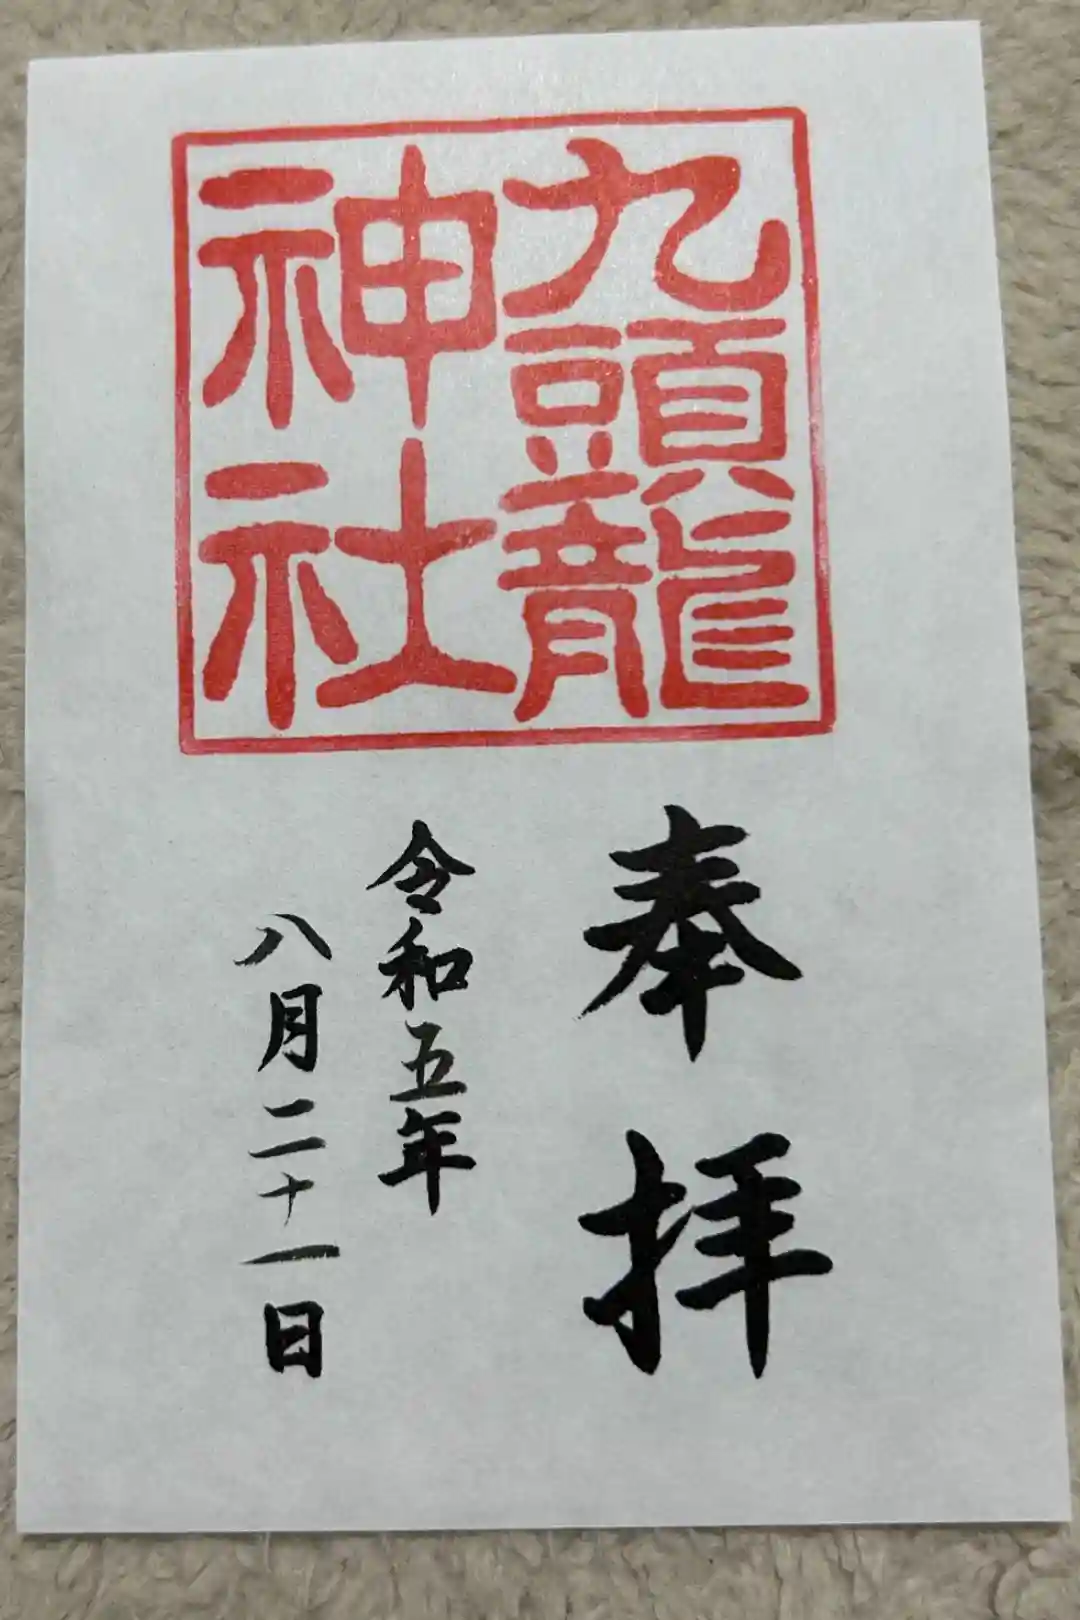 九頭龍
神社
奉拝
令和五年
八月二十一日